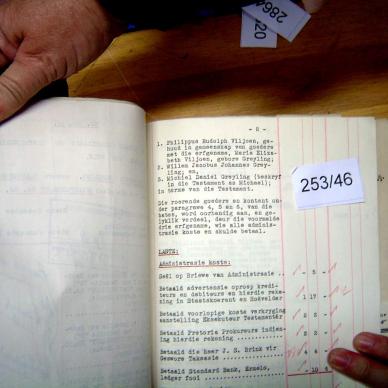 2864
20
253/46
- 2 -
1. Philippus Rudolph Viljoen, ge-
huud in gemeenskap van goedere
met die erfgename, Maria Eliza-
beth Viljoen, gebore Greyling;
2. Willem Jacobus Johannes Grey-
ling; en,
3. Michiel Daniel Greyling (beskryf
in die Testament as Michael);
in terme van die Testament.
Die roerende goedere en kontant on-
der paragrawe 4, 5 en 6, van die
bates, word oorhandig aan, en ge-
lyklik verdeel, deur die voormelde
drie erfgename, wie alle adminis-
trasie koste en skulde betaal.
LASTE:
Administrasie koste:
Seël op Briewe van Administrasie .. - 5 -
Betaald advertensie oproep kredi-
teure en debiteure en hierdie reke-
ning in Staatskoerant en Hoëvelder 1 17 -
Betaald voorlopige koste verkryging
aanstelling Eksekuteur Testamentêr 2 2 -
Betaald Pretoria Prokureurs indien-
ing hierdie rekening 2 2 -
Betaald die heer J. S. Brink vir
Geswore Taksasie 4 4 -
Betaald Standard Bank, Ermelo,
ledger fooi - 10 6